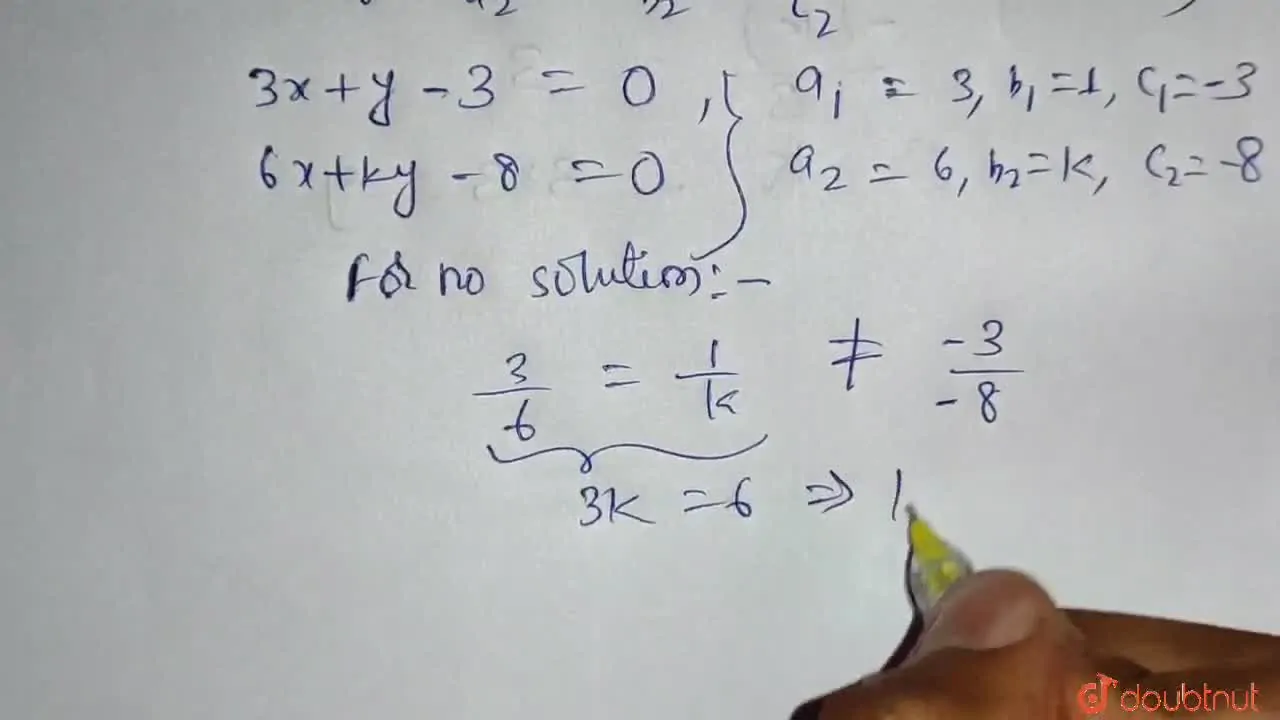 a2 b2 c2
3x+y-3 = 0, } a1 = 3, b1=1, c1=-3
6x+ky-8 = 0 a2 = 6, b2=k, c2=-8
For no solution:-
3/6 = 1/k ≠ -3/-8
3k = 6 ⇒
doubtnut